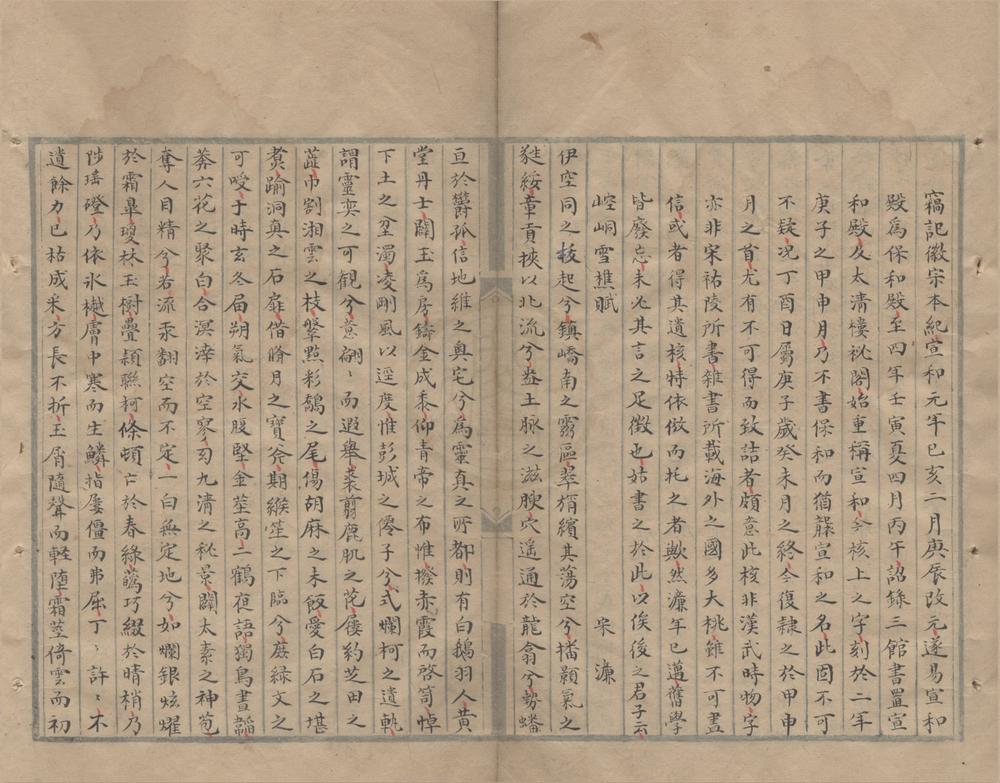 竊記徽宗本紀宣和元年己亥二月庚辰改元遂易宣和
殿爲保和殿至四年壬寅夏四月丙午詔錄三館書置宣
和殿及太清樓祕閣始重稱宣和今核上之字刻於二年
庚子之甲申月乃不書保和而猶襲宣和之名此固不可
不疑况丁酉日屬庚子歲癸未月之終今復隸之於甲申
月之首尤有不可得而致詰者頗意此核非漢武時物字
亦非宋祐陵所書雜書所載海外之國多大桃雖不可盡
信或者得其遺核特依倣而托之者歟然濂年已邁舊學
皆廢忘未必其言之足徴也姑書之於此以俟後之君子云
崆峒雪樵賦　宋濂
伊空同之棱起兮鎮嶠南之靈區萃䋠繽其蕩空兮播顥氣之
㲋綏章貢挾以北流兮盎土脉之滋腴穴遥通於龍翕兮勢蟠
亘於欝孤信地維之奥宅兮爲靈真之所都則有白鵝羽人黄
堂丹士闢玉爲房鑄金成黍仰青帝之布惟撥赤霞而啓笥悼
下土之坌濁凌剛風以逕度惟彭城之儒子兮式爛柯之遺軌
謂靈奕之可觀兮意翩〻而遐舉裘翦鹿肌之花屨約芝田之
蕋巾割湘雲之枝擊㸃彩鷸之尾傷胡麻之未飯愛白石之堪
煑踰洞真之石扉借脩月之寳斧期緱笙之下臨兮庶緑文之
可受于時玄冬届朔氣交水股堅金莖高二鶴夜語獨鳥晝謟
莽六花之聚白合溟涬於空寥匆九清之秘景闢太素之神苞
奪人目精兮若流汞翻空而不定一白無定地兮如爛銀炫耀
於霜臯瓊林玉樹疊頴聯柯條頓亡於春緑蘤巧綴於晴梢乃
陟瑶磴乃依氷樾膚中寒而生鱗指屢僵而弗屈丁〻許〻木
遺餘力已枯成米方長不折玉屑隨聲而輕墮霜莖倚雲而初